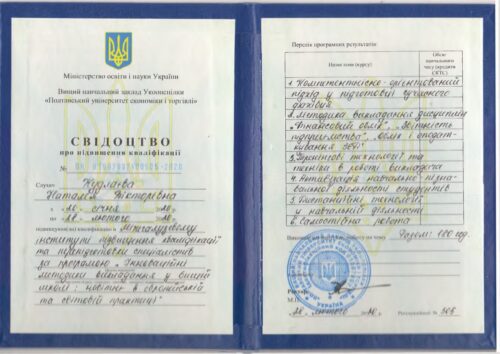 Міністерство освіти і науки України
Вищий навчальний заклад Укоопспілки
«Полтавський університет економіки і торгівлі»
СВІДОЦТВО
про підвищення кваліфікації
№
Слухач
Наталія Вікторівна
з «20» січня
по «28» лютого
підвищував(ла) кваліфікацію в Міжгалузевому
інституті підвищення кваліфікації
та перепідготовки спеціалістів
за програмою „Інноваційні
методики викладання у вищій
школі: новітнє в європейській
та світовій практиці"
Перелік програмних результатів
Назва теми (курсу)
Обсяг
навчального
часу (кредити
ЄКТС)
1. Компетентнісно-орієнтований
підхід у підготовці сучасного
фахівця
2. Методика викладання дисциплін
„Фінансовий облік", „Звітність
підприємства", „Облік і оподат-
кування ЗЕД"
технології та
техніки в роботі викладача
4. Активізація навчально-пізна-
вальної діяльності студентів
5. Дистанційні технології
у навчальній діяльності
6. Самостійна робота
Разом: 180 год.
М.П.
УКРАЇНА
лютого
Реєстраційний №